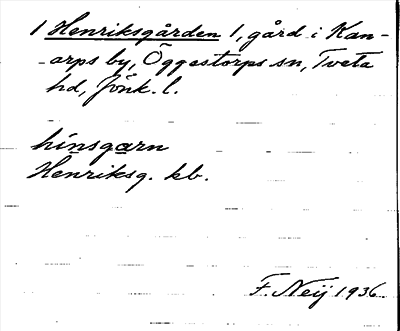 1 Henriksgården 1, gård i Kan-
arps by, Öggestorps sn, Tveta
hd, Jönk. l.
hinsgarn
Henriksg. kb.
F. Neij 1936.